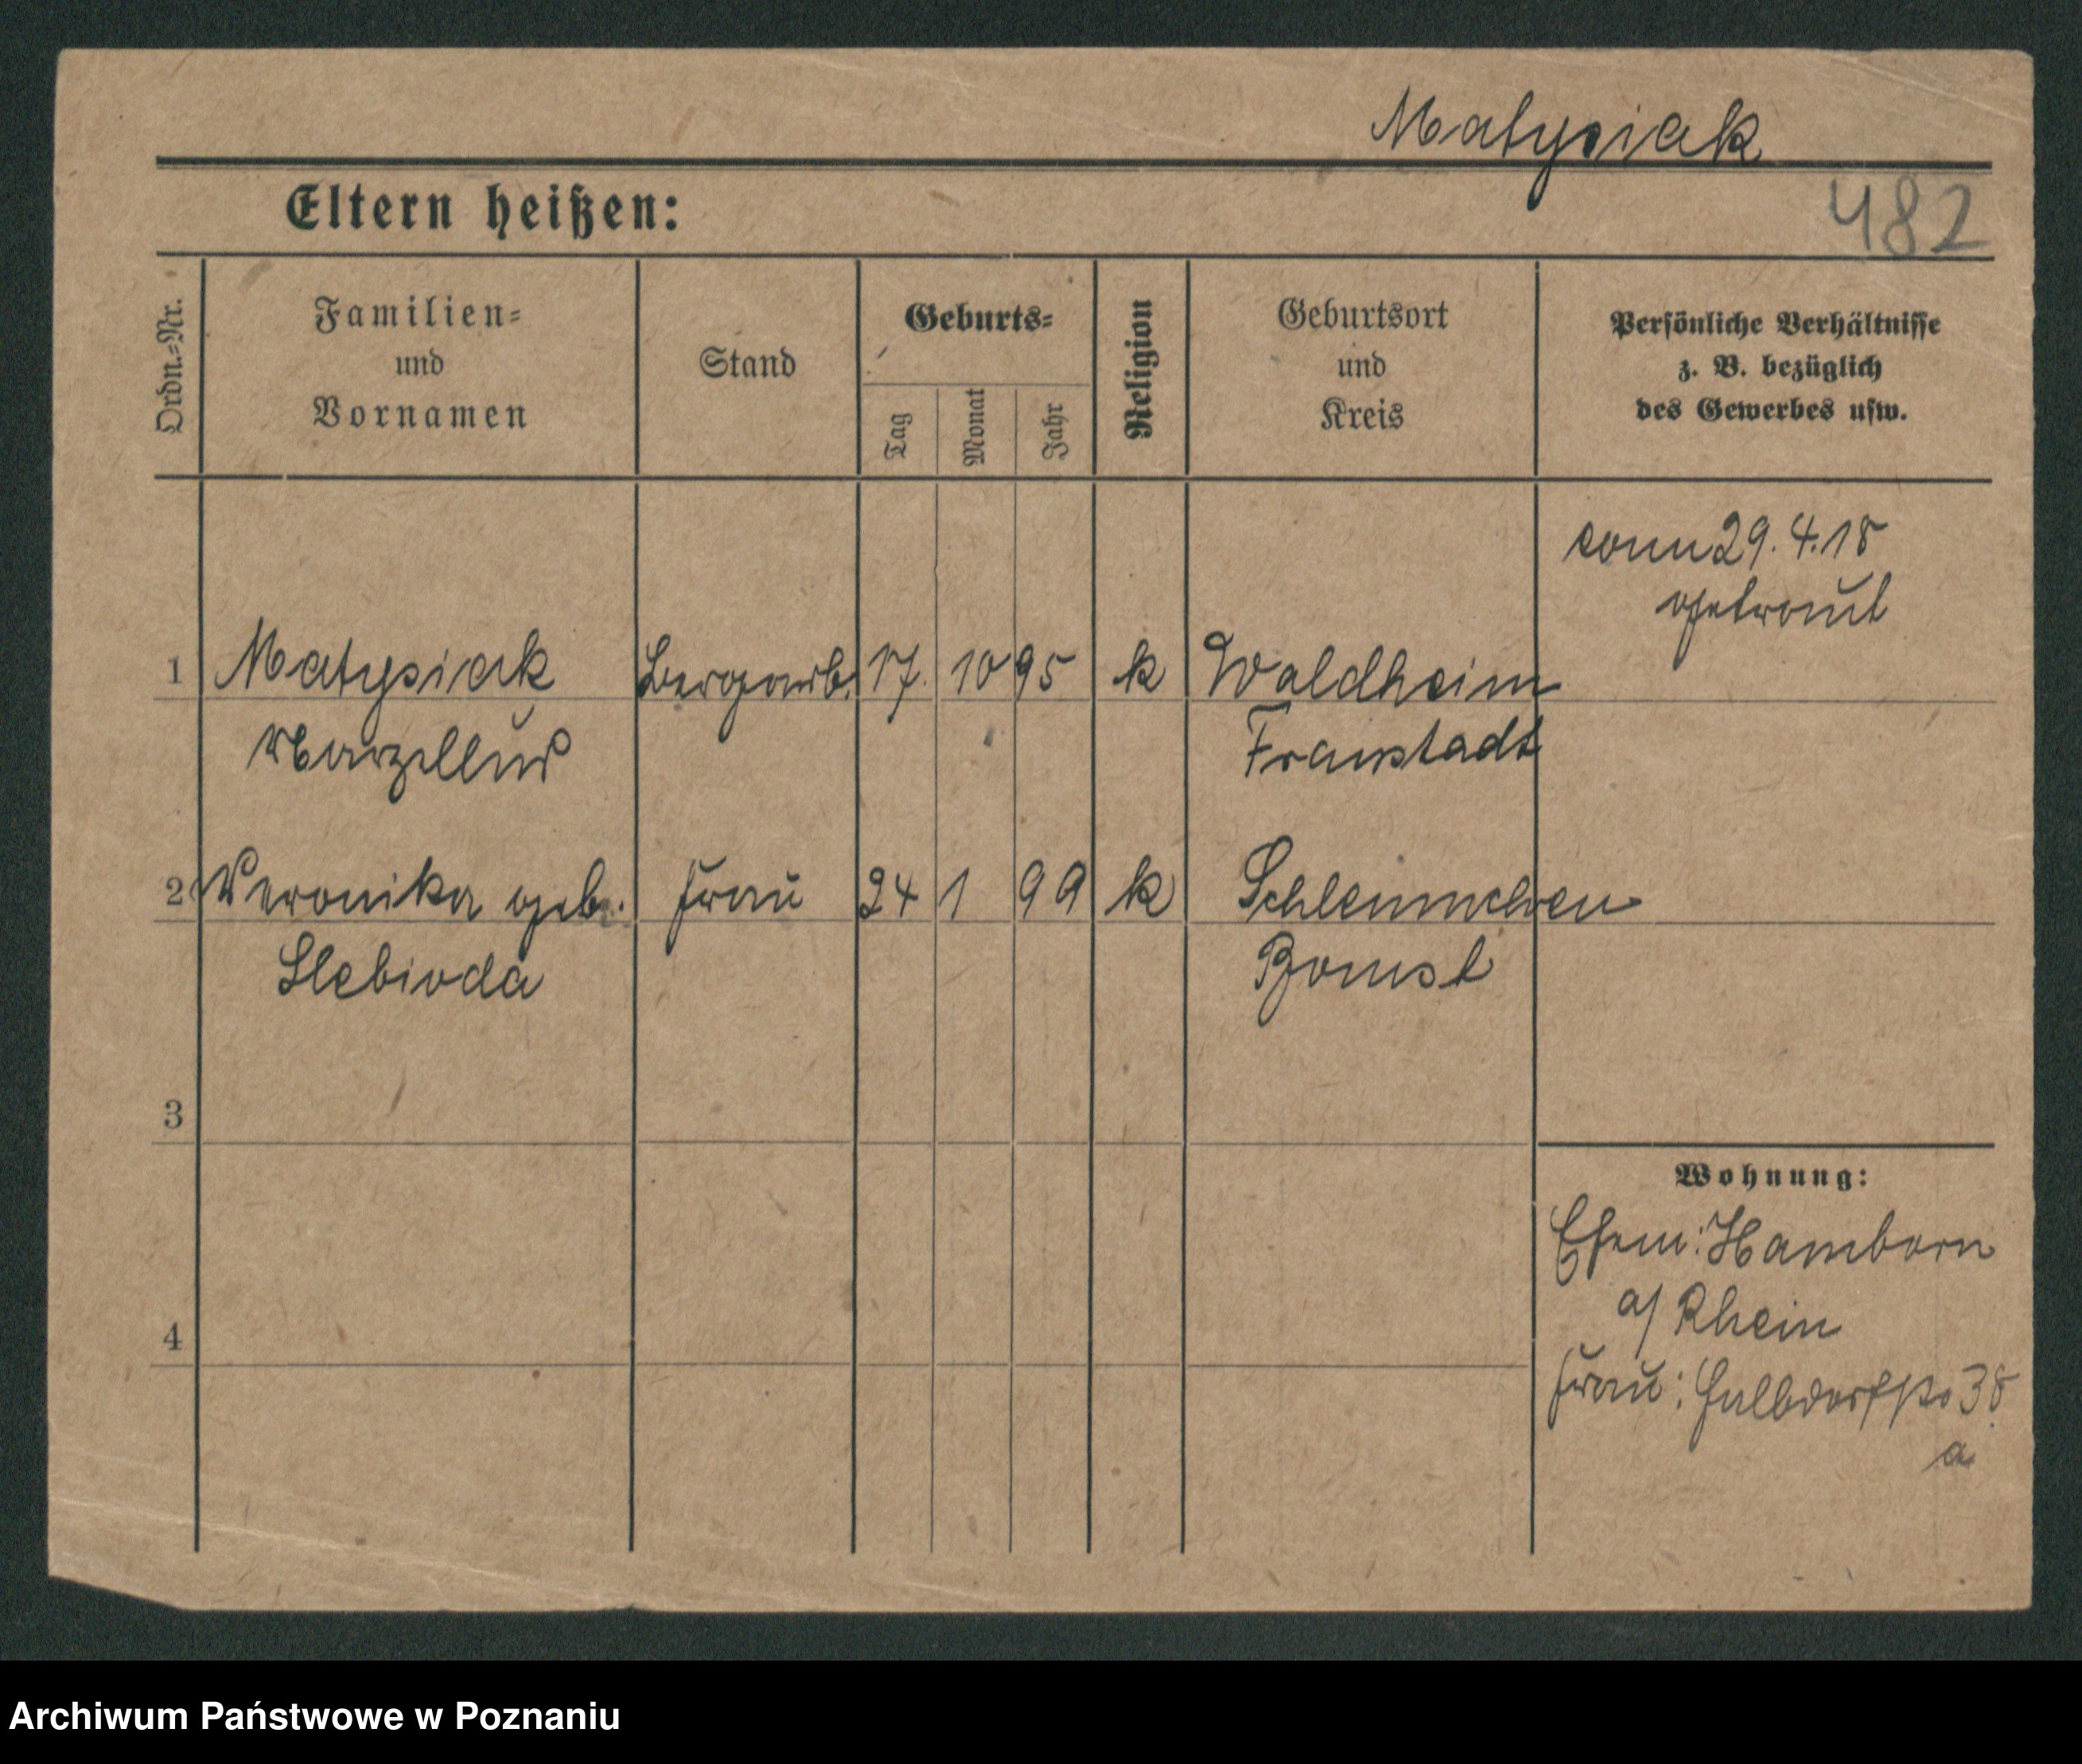 Matysiak
Eltern heißen:
482
Ordn.-Nr.
Familien-
und
Vornamen
Stand
Geburts-
Tag
Monat
Jahr
Religion
Geburtsort
und
Kreis
Persönliche Verhältnisse
z. B. bezüglich
des Gewerbes usw.
29.4.18
getraut
1 Matysiak Bergarb. 17. 10 95 k Waldheim
Marzellus Fraustadt
2 Veronika geb. Frau 24 1 99 k
Slebioda Bomst
3
Wohnung:
Ehem: Hamborn
a/ Rhein
4
Frau: 38
a
Archiwum Państwowe w Poznaniu